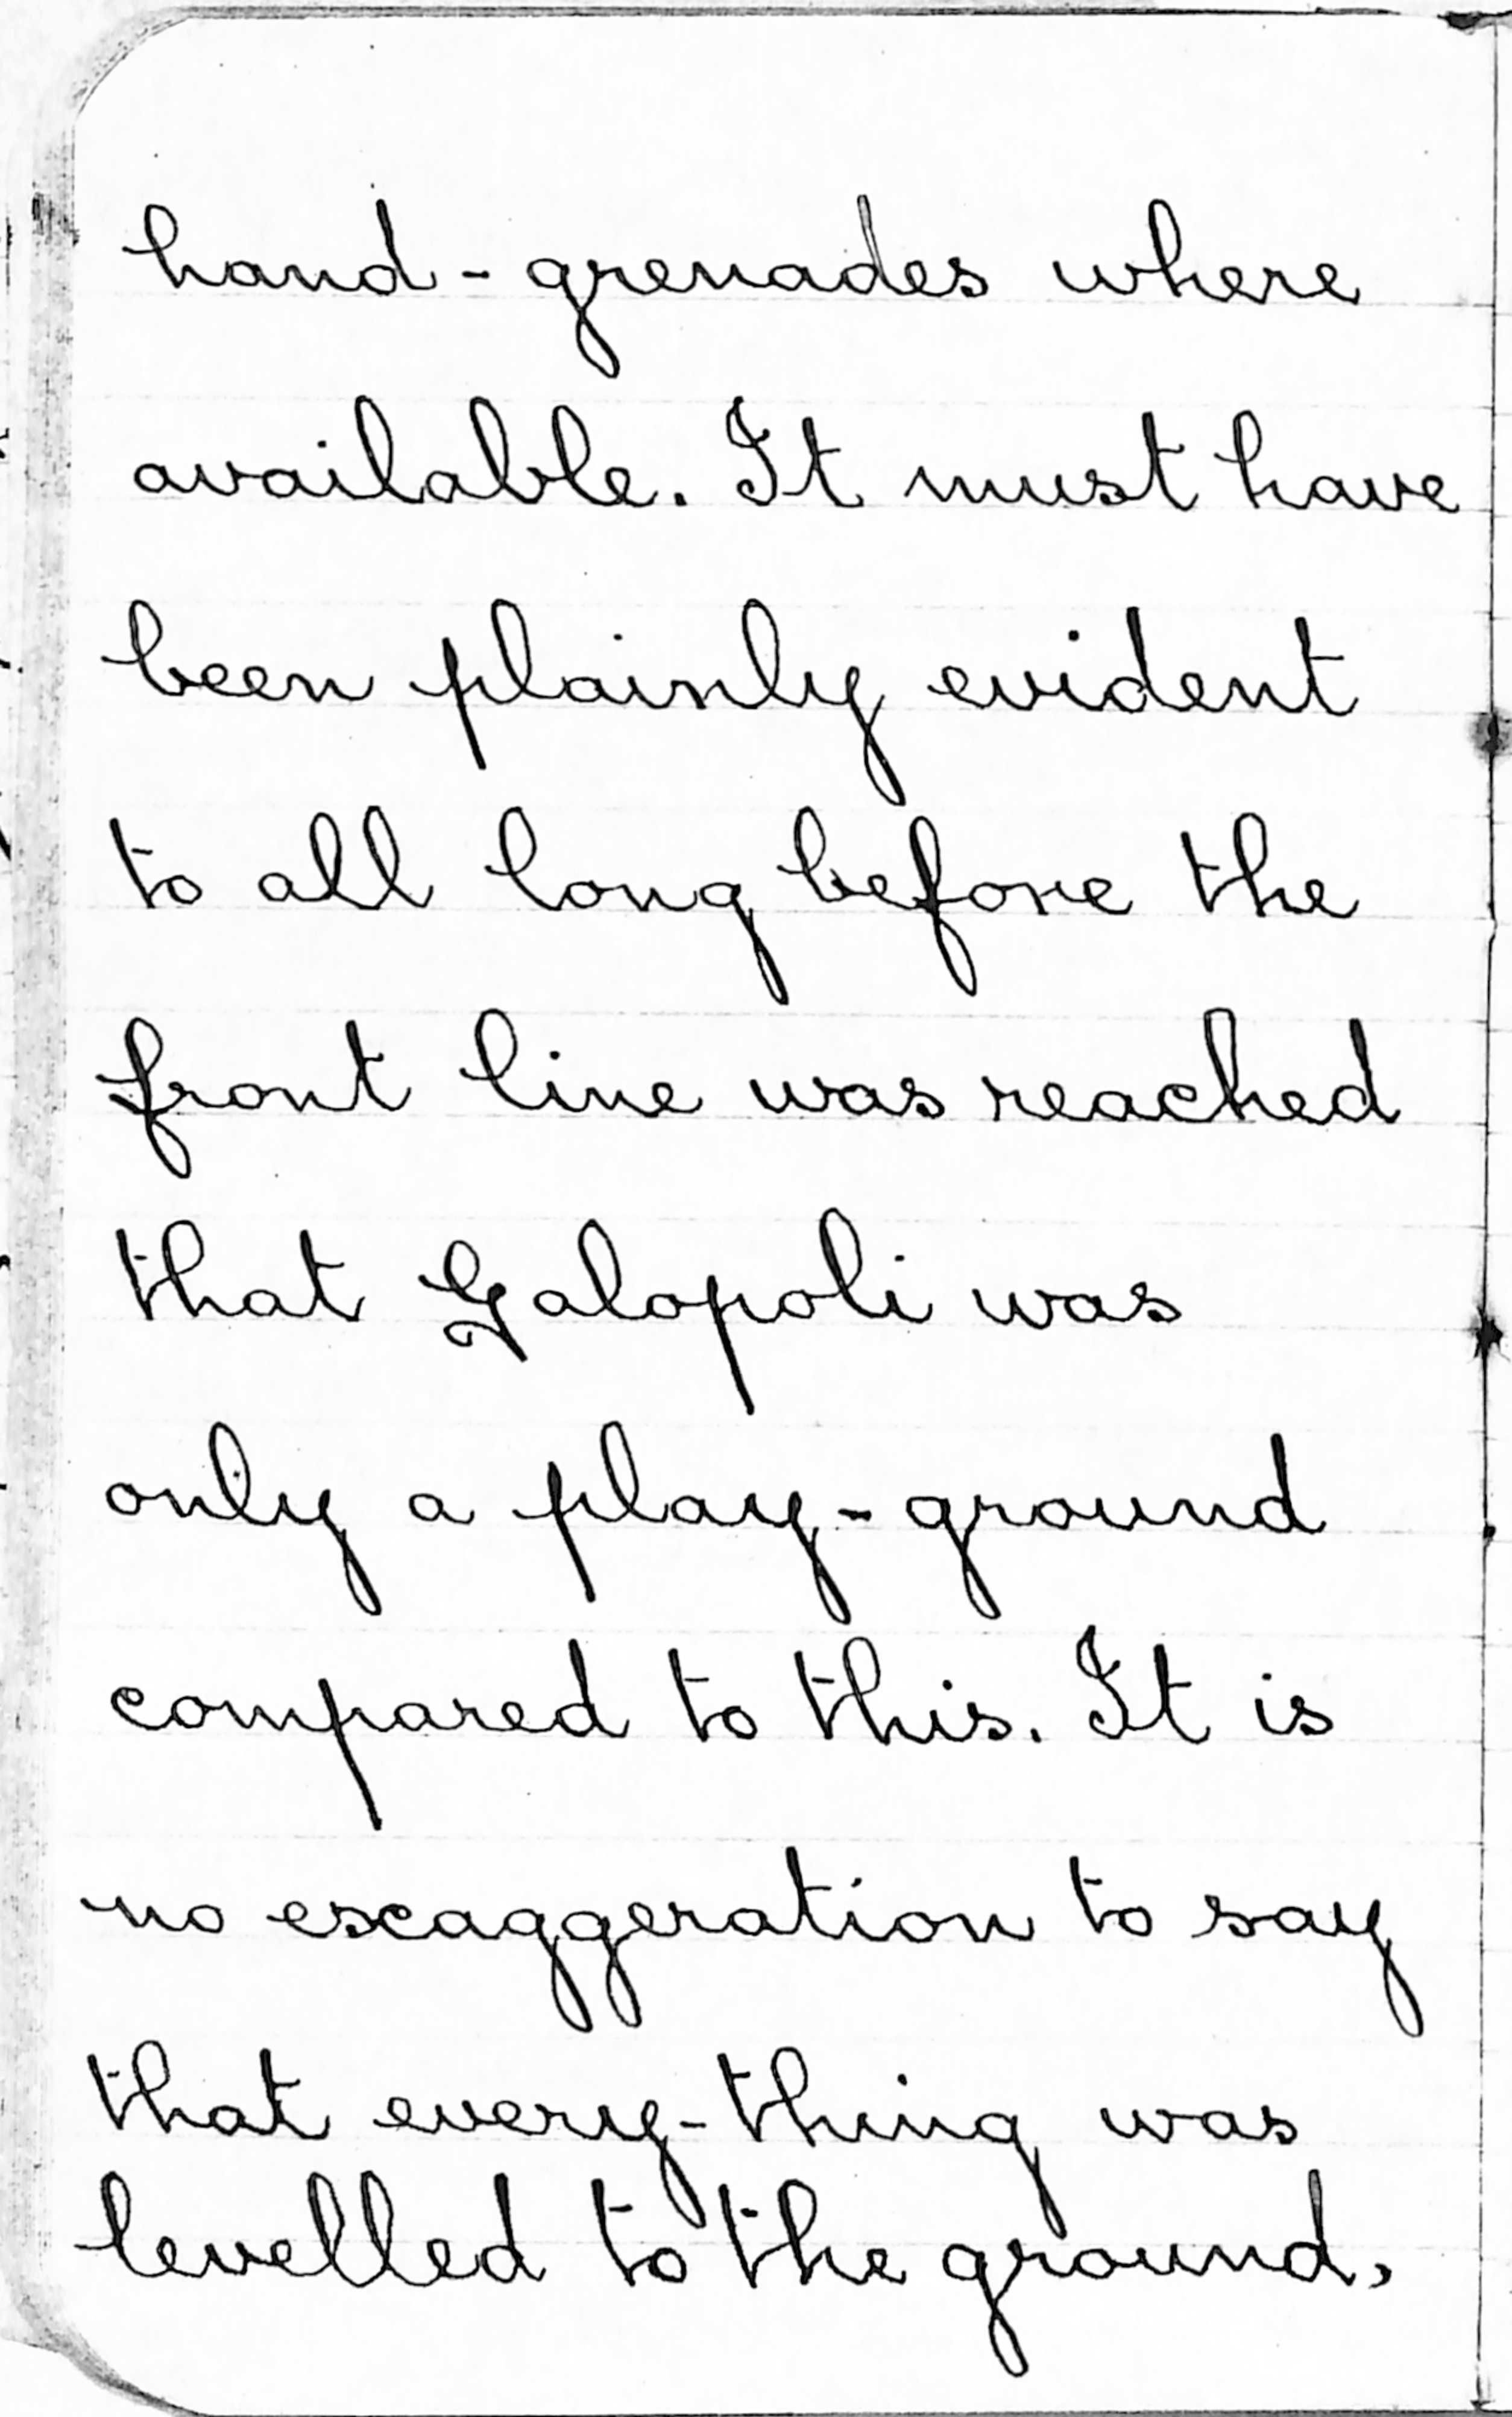 hand-grenades where
available. It must have
been plainly evident
to all long before the
front line was reached
that Galopoli was
only a play-ground
compared to this. It is
no escaggeration to say
that every-thing was
levelled to the ground,